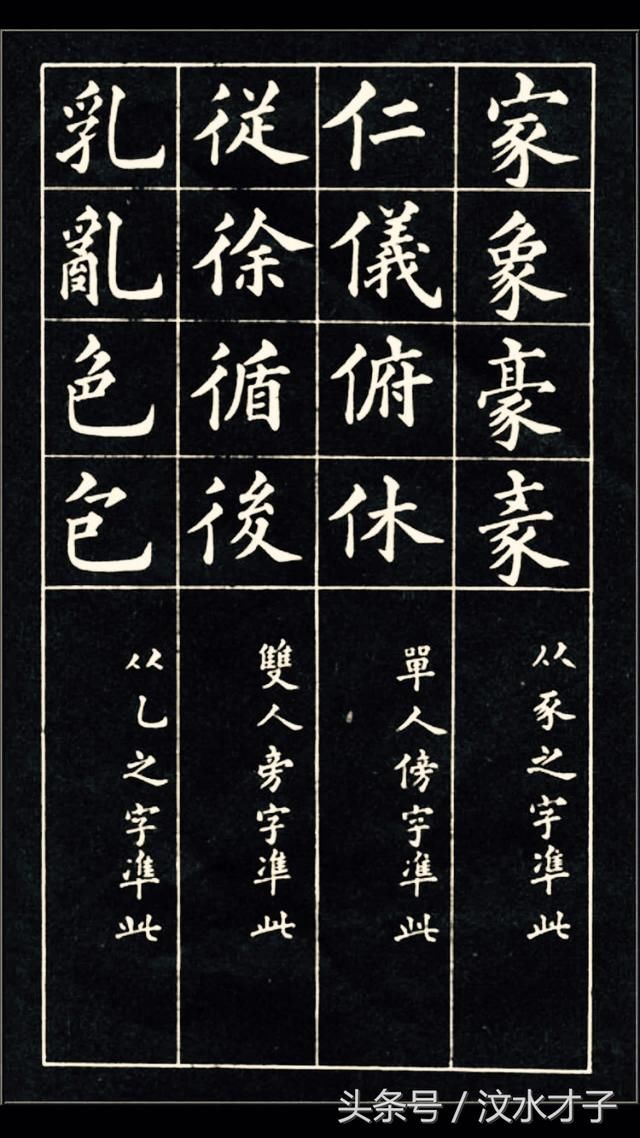 家象豪
从豕之字凖此
仁儀俯休
單人傍字凖此
従徐循後
雙人旁字凖此
乳亂色包
从乚之字凖此
头条号 / 汶水才子